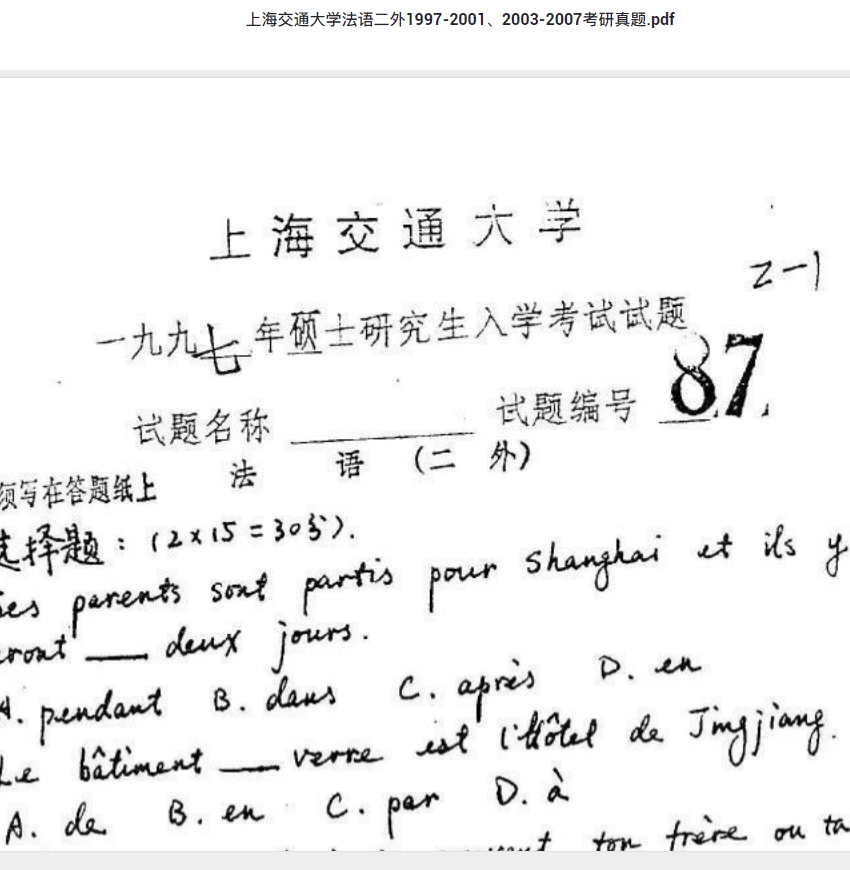 上海交通大学法语二外1997-2001、2003-2007考研真题.pdf
上海交通大学
2-1
一九九七年硕士研究生入学考试试题
试题名称 试题编号 87
法 语 (二 外)
须写在答题纸上
选择题:(2×15=30分).
parents sont partis pour Shanghai et ils y
ront ___ deux jours.
A. pendant B. dans C. après D. en
Le bâtiment ___ verre est l'Hôtel de Jingjiang.
A. de B. en C. par D. à
ton frère ou ta